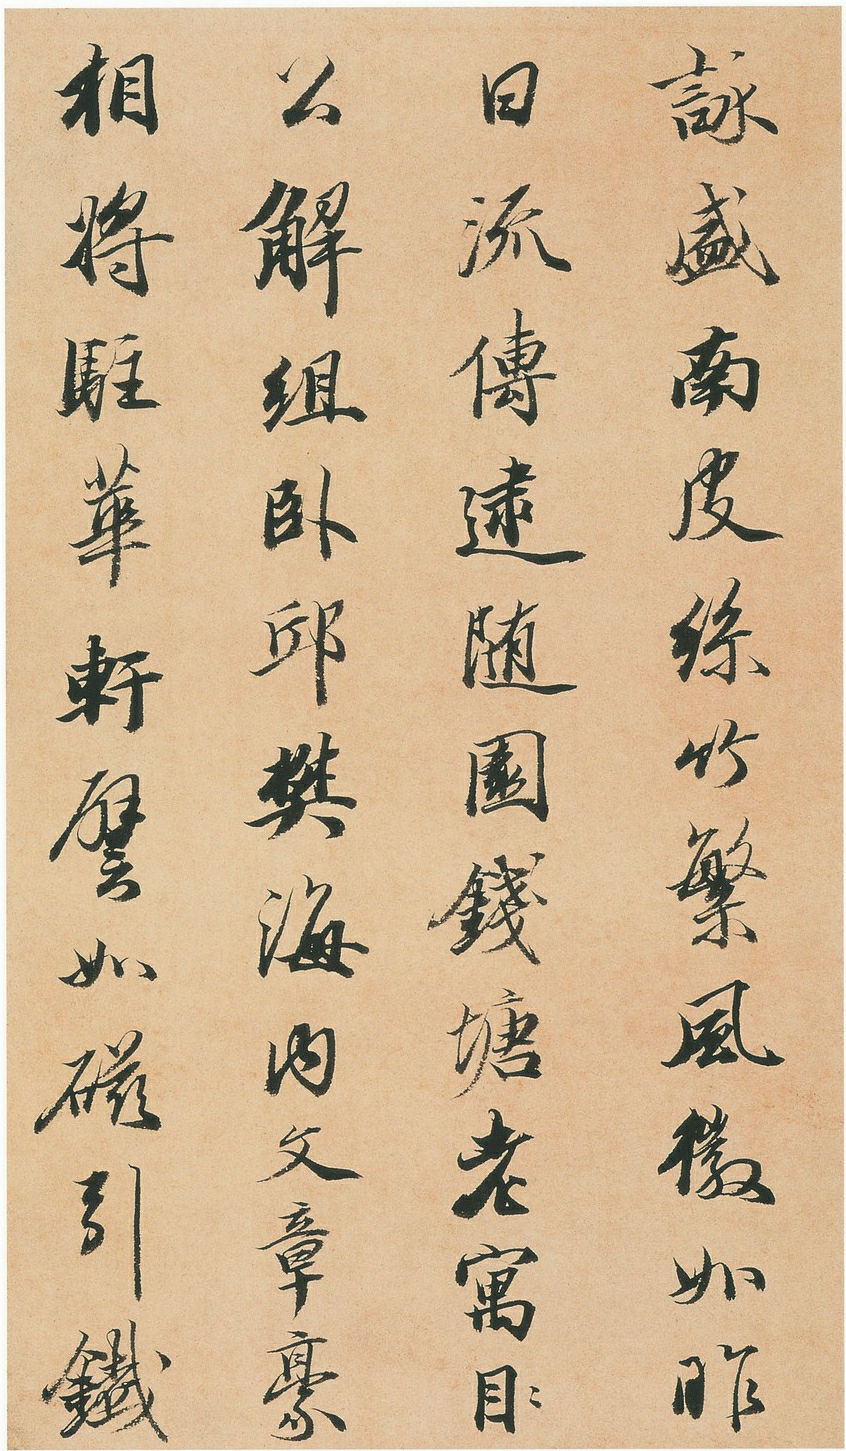 詠盛南皮絲竹繁風徽如昨
日流傳遠随園錢塘老寓目〻
公解組卧邱樊海内文章豪
相將駐華軒譬如磁引鐵